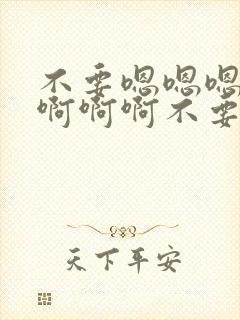 不要嗯嗯嗯
啊啊啊不要
天下平安